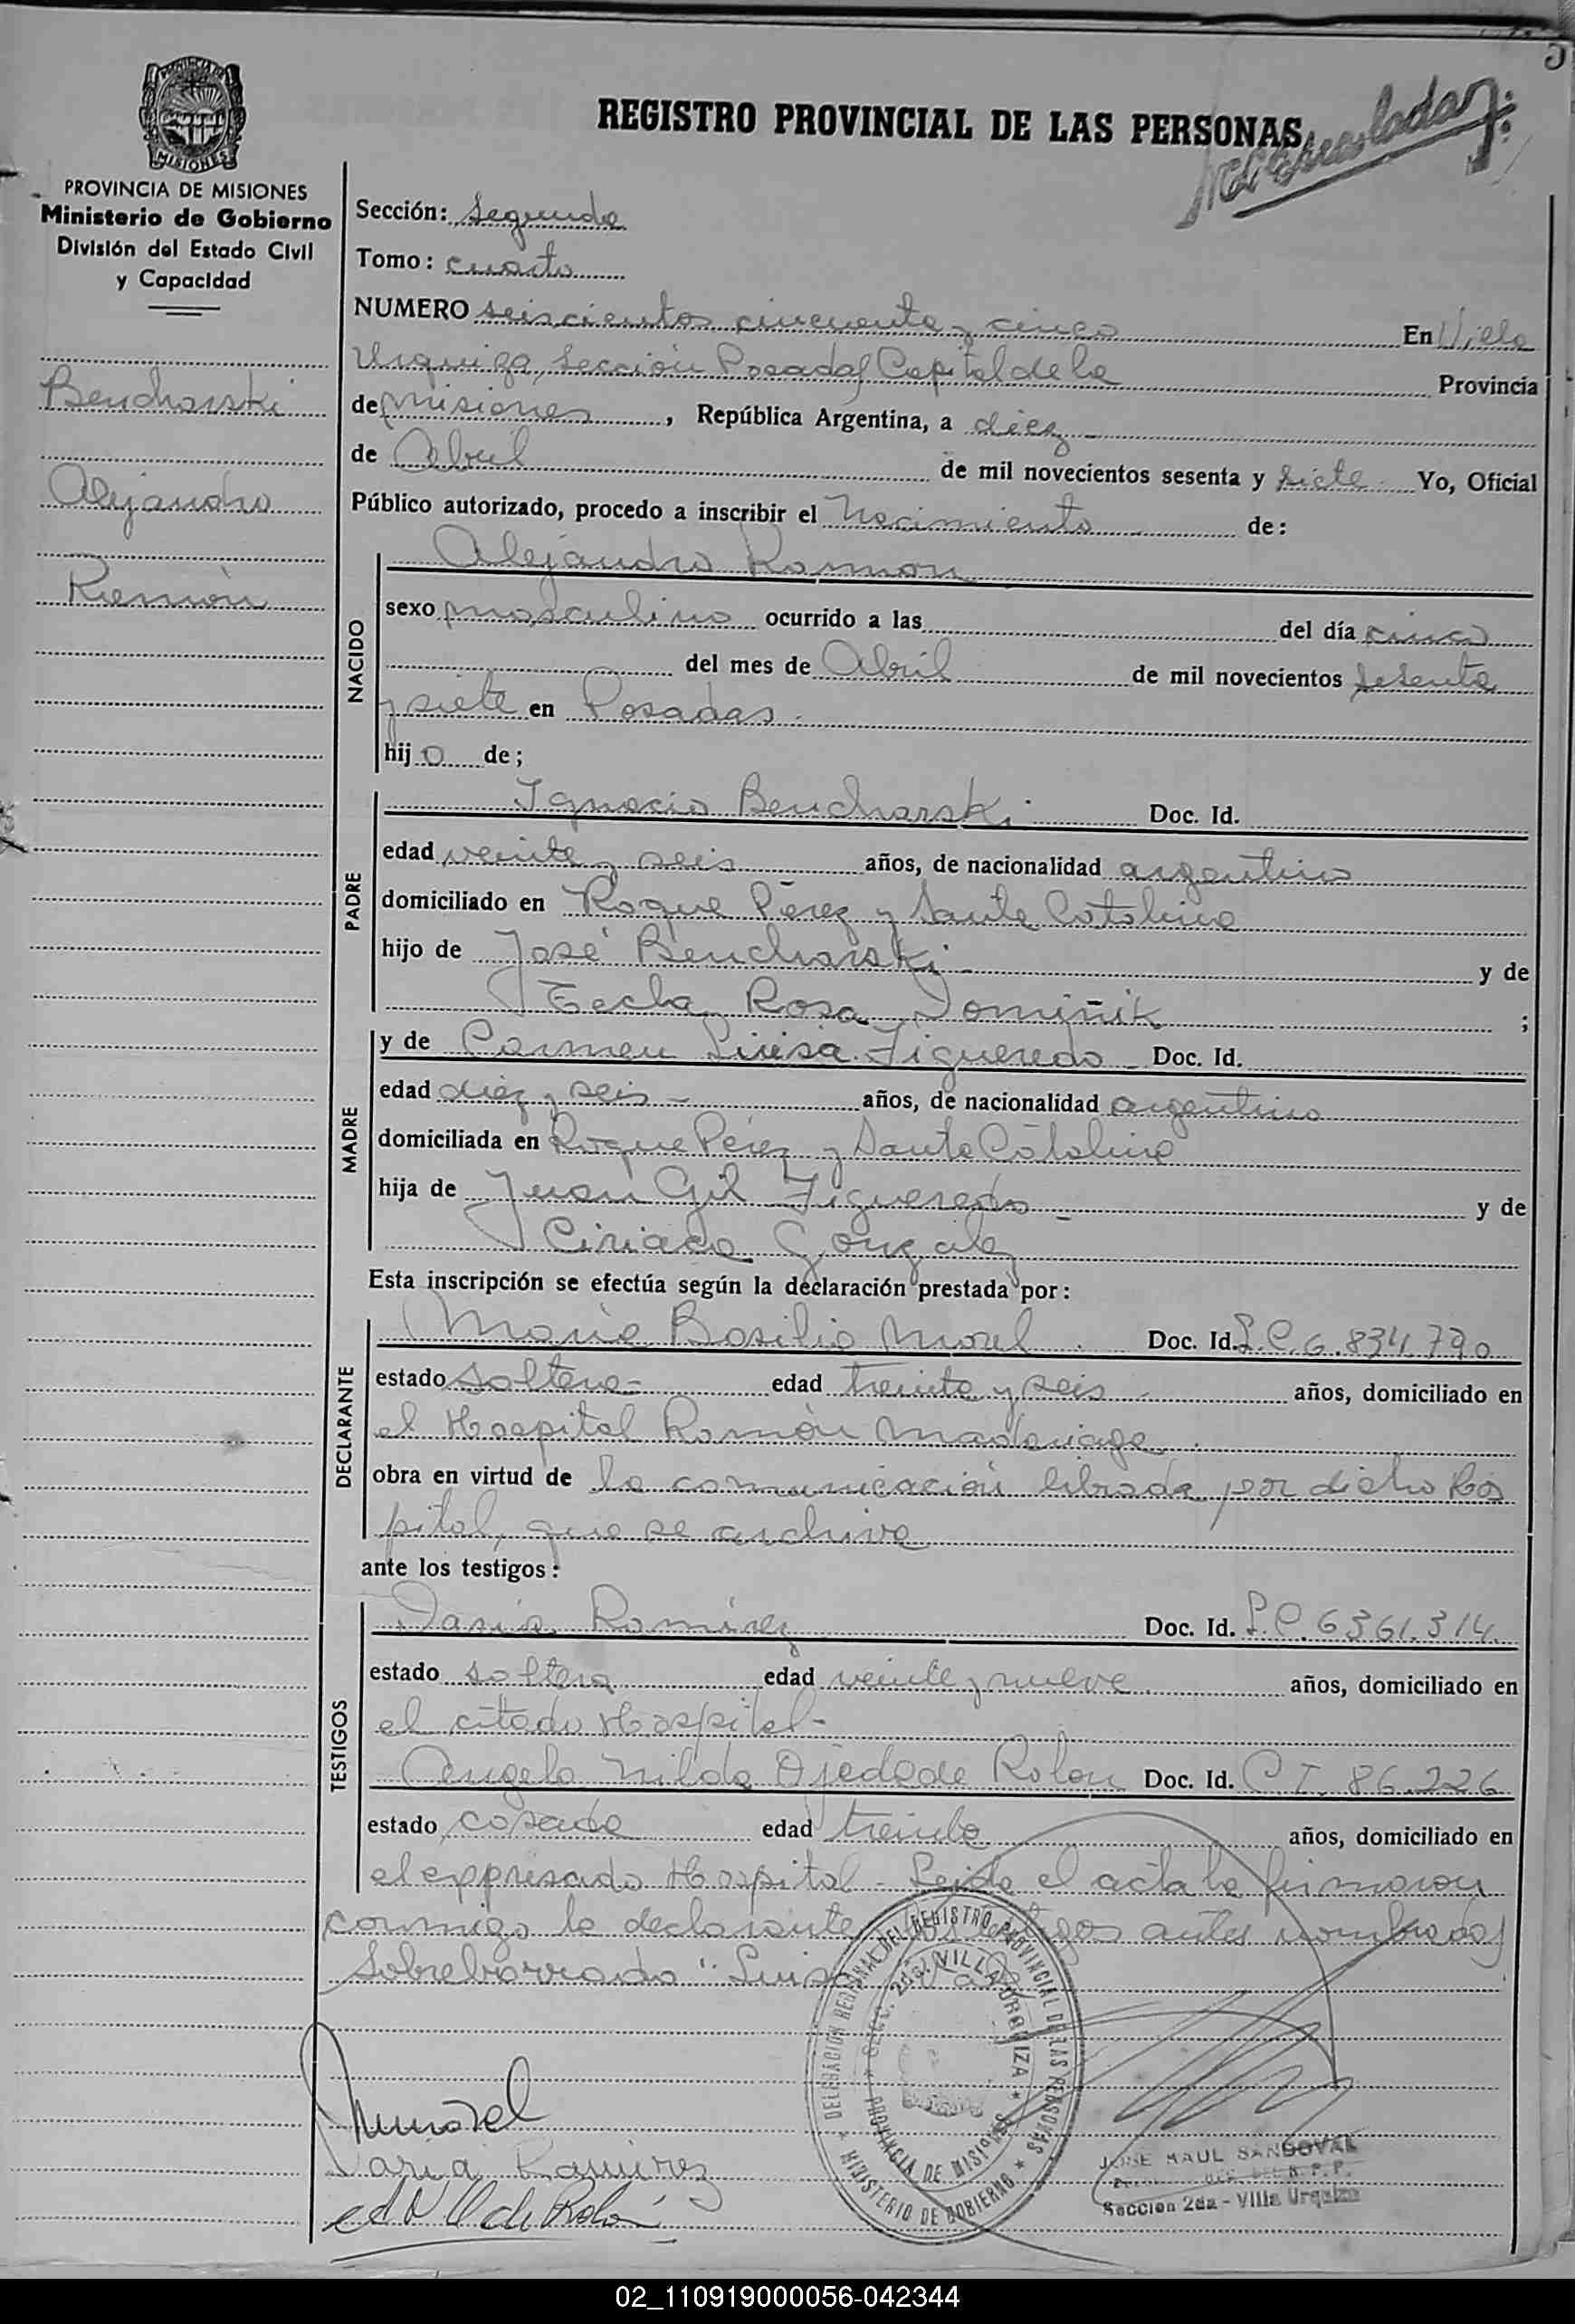 REGISTRO PROVINCIAL DE LAS PERSONAS
PROVINCIA DE MISIONES
Ministerio de Gobierno
División del Estado Civil
y Capacidad
Bencharski
Alejandro
Ramón
Sección: Segunda
Tomo: cuarto
NUMERO seiscientos cincuenta y cinco En Villa
Urquiza, Sección Posadas Capital de la Provincia
de Misiones, República Argentina, a diez
de Abril de mil novecientos sesenta y siete Yo, Oficial
Público autorizado, procedo a inscribir el Nacimiento de:
NACIDO
Alejandro Ramon
sexo masculino ocurrido a las del día cinco
del mes de Abril de mil novecientos sesenta
y siete en Posadas.
hijo de;
PADRE
Ignacio Bencharski Doc. Id.
edad veinte y seis años, de nacionalidad argentino
domiciliado en Roque Pérez y Santa Catalina
hijo de José Bencharski y de
Tecla Rosa Domiñik ;
MADRE
y de Carmen Luisa Figueredo Doc. Id.
edad diez y seis años, de nacionalidad argentina
domiciliada en Roque Pérez y Santa Catalina
hija de Juan Gil Figueredo y de
Ciriaca Gonzalez
Esta inscripción se efectúa según la declaración prestada por:
DECLARANTE
Maria Basilia Morel Doc. Id. L.C. 6.834.790
estado soltera edad treinta y seis años, domiciliado en
el Hospital Ramón Madariaga
obra en virtud de la comunicación librada por dicho Hos
pital, que se archiva
ante los testigos:
TESTIGOS
Dasia Ramirez Doc. Id. L.C. 6361.314
estado soltera edad veinte y nueve años, domiciliado en
el citado Hospital-
Angela Nilda Ojeda de Rolon Doc. Id. C I. 86.226
estado casada edad treinta años, domiciliado en
el expresado Hospital - Leida el acta la firmaron
conmigo la declarante antes nombrados
Sobreborrado "Luisa"
DELEGACION REGIONAL DEL REGISTRO PROVINCIAL DE LAS PERSONAS
MINISTERIO DE GOBIERNO
SECC. 2da. VILLA URQUIZA
PROVINCIA DE MISIONES
Morel
Ramirez
de Rolón
JOSE RAUL SANDOVAL
Seccion 2da - Villa Urquiza
02_110919000056-042344